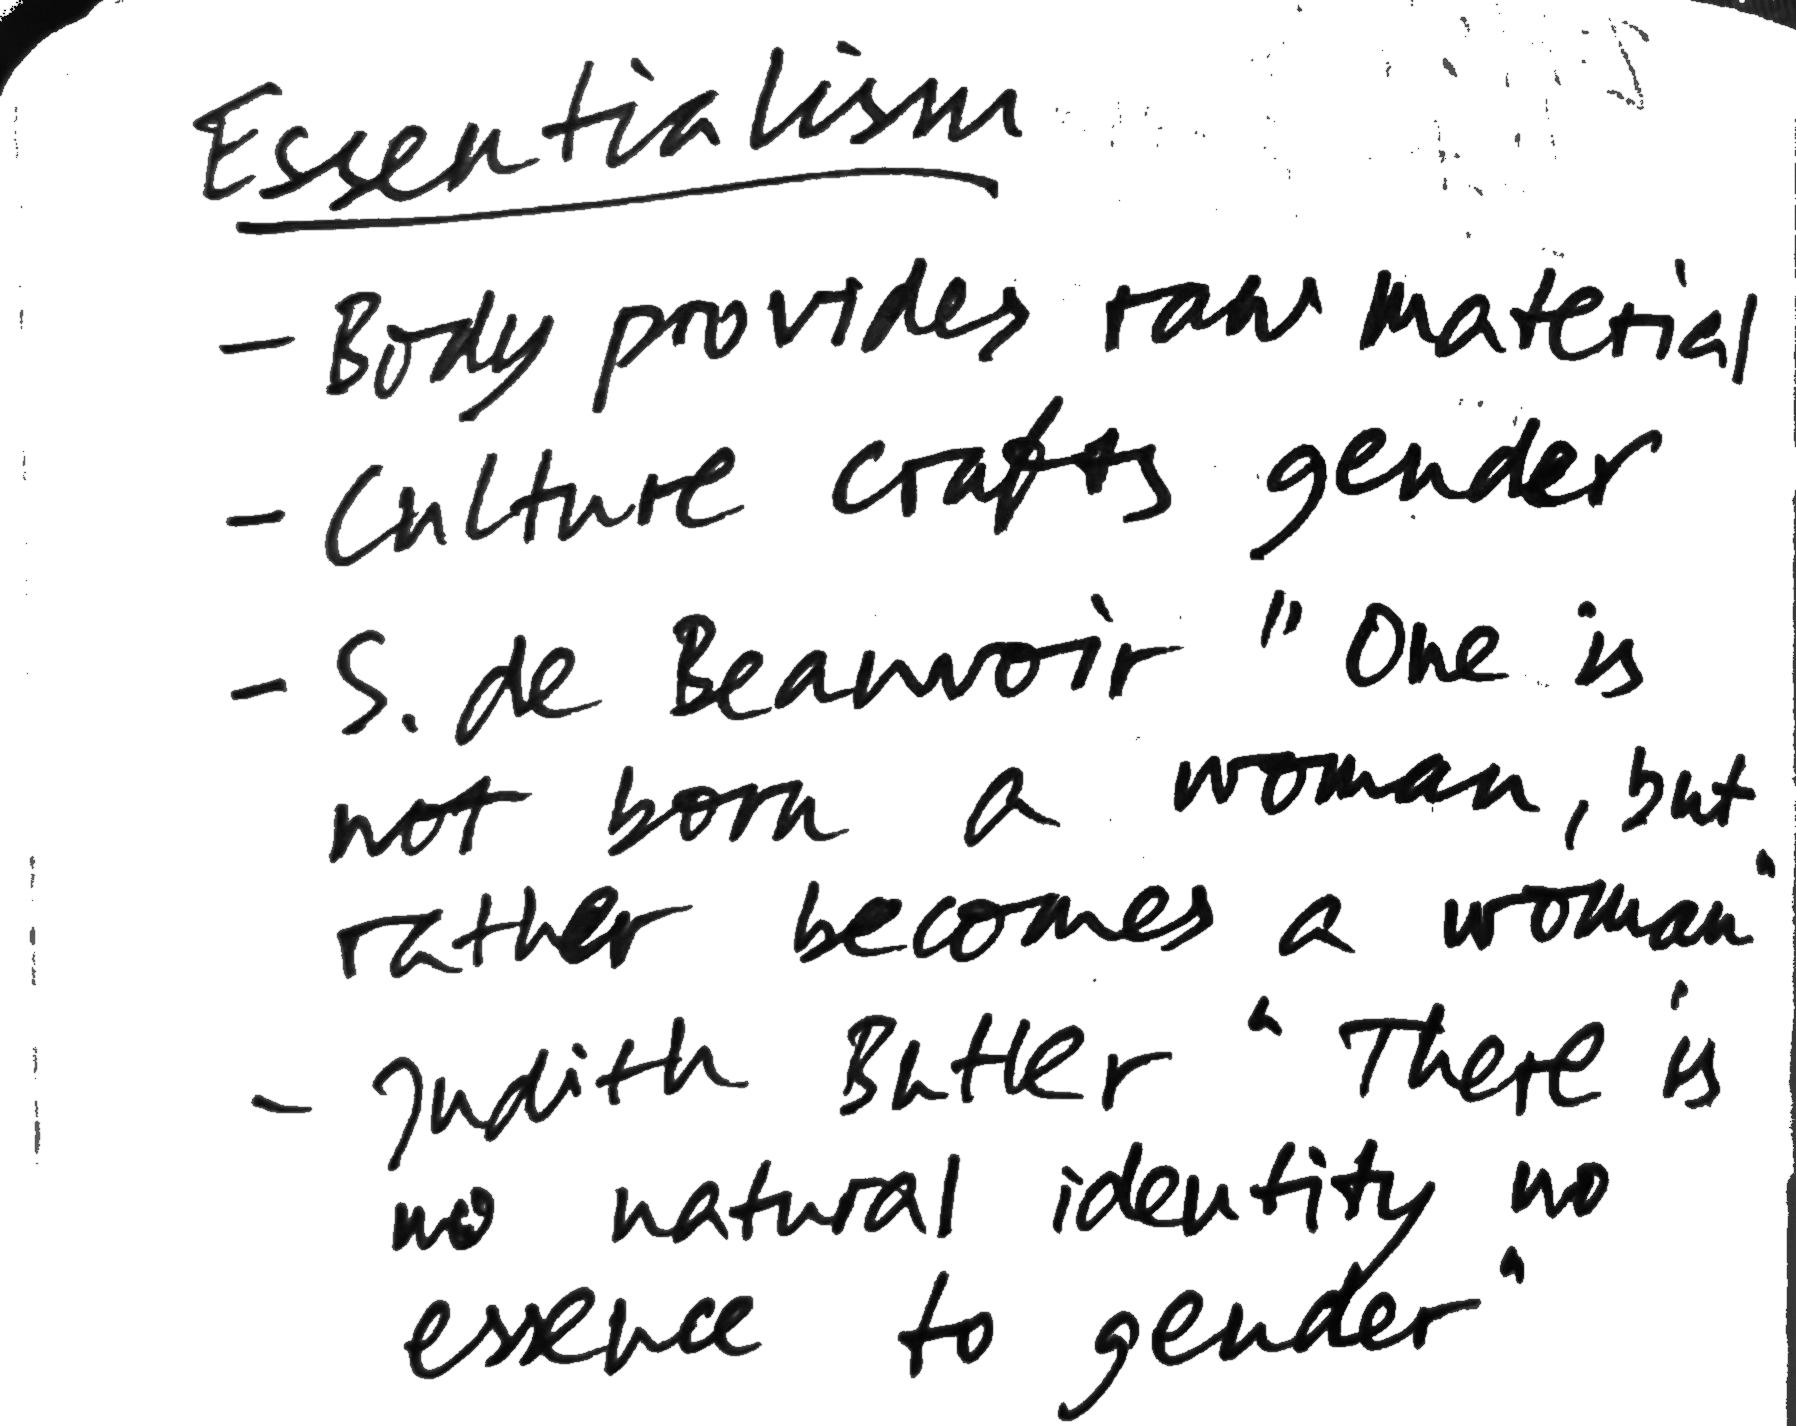 Essentialism
- Body provides raw material
- Culture crafts gender
- S. de Beauvoir "One is
not born a woman, but
rather becomes a woman"
- Judith Butler "There is
no natural identity no
essence to gender"